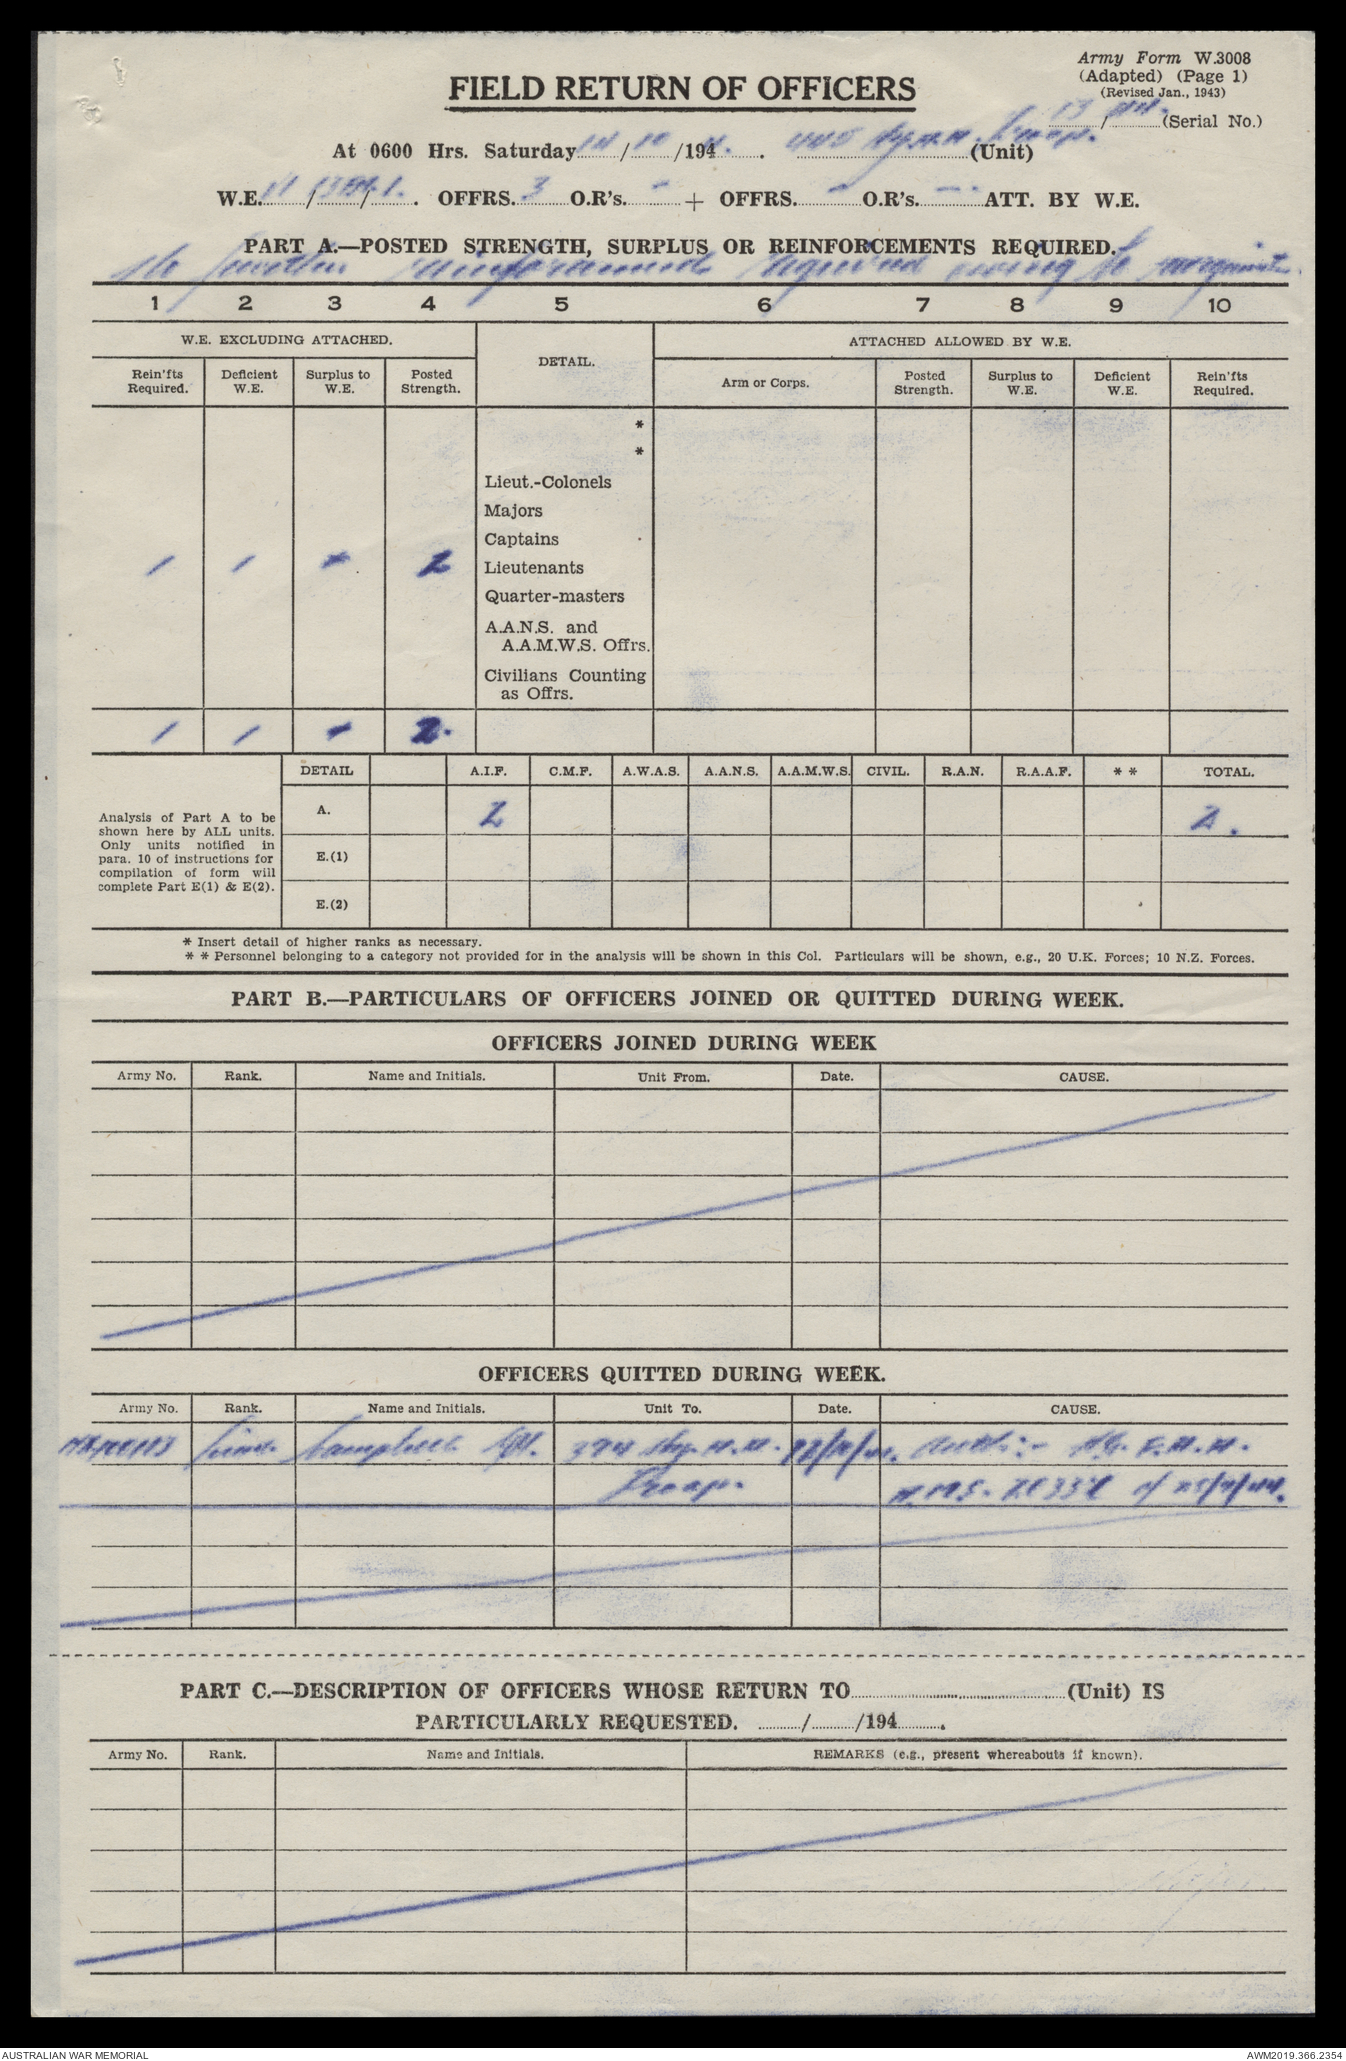 Army Form W.3008
(Adapted) (Page 1)
(Revised Jan., 1943)
FIELD RETURN OF OFFICERS
13 / 44. (Serial No.)
At 0600 Hrs. Saturday 14 / 10 /194 4. (Unit) Troop.
W.E. / / . OFFRS. 3 O.R's. - + OFFRS. - O.R's. --- ATT. BY W.E.
PART A.—POSTED STRENGTH, SURPLUS OR REINFORCEMENTS REQUIRED.
No further reinforcements required owing to
1 2 3 4 5 6 7 8 9 10
W.E. EXCLUDING ATTACHED. DETAIL. ATTACHED ALLOWED BY W.E.
Rein'fts Required. Deficient W.E. Surplus to W.E. Posted Strength. Arm or Corps. Posted Strength. Surplus to W.E. Deficient W.E. Rein'fts Required.
*
*
Lieut.-Colonels
Majors
Captains
1 1 - 2 Lieutenants
Quarter-masters
A.A.N.S. and
A.A.M.W.S. Offrs.
Civilians Counting
as Offrs.
1 1 - 2.
DETAIL A.I.F. C.M.F. A.W.A.S. A.A.N.S. A.A.M.W.S. CIVIL. R.A.N. R.A.A.F. * * TOTAL.
Analysis of Part A to be
shown here by ALL units.
Only units notified in
para. 10 of instructions for
compilation of form will
complete Part E(1) & E(2).
A. 2 2.
E.(1)
E.(2)
* Insert detail of higher ranks as necessary.
* * Personnel belonging to a category not provided for in the analysis will be shown in this Col. Particulars will be shown, e.g., 20 U.K. Forces; 10 N.Z. Forces.
PART B.—PARTICULARS OF OFFICERS JOINED OR QUITTED DURING WEEK.
OFFICERS JOINED DURING WEEK
Army No. Rank. Name and Initials. Unit From. Date. CAUSE.
OFFICERS QUITTED DURING WEEK.
Army No. Rank. Name and Initials. Unit To. Date. CAUSE.
Lieut. Campbell 374 Hy. A.A. Auth:-
Troop.
PART C.—DESCRIPTION OF OFFICERS WHOSE RETURN TO (Unit) IS
PARTICULARLY REQUESTED. / /194 .
Army No. Rank. Name and Initials. REMARKS (e.g., present whereabouts if known).
AUSTRALIAN WAR MEMORIAL
AWM2019.366.2354